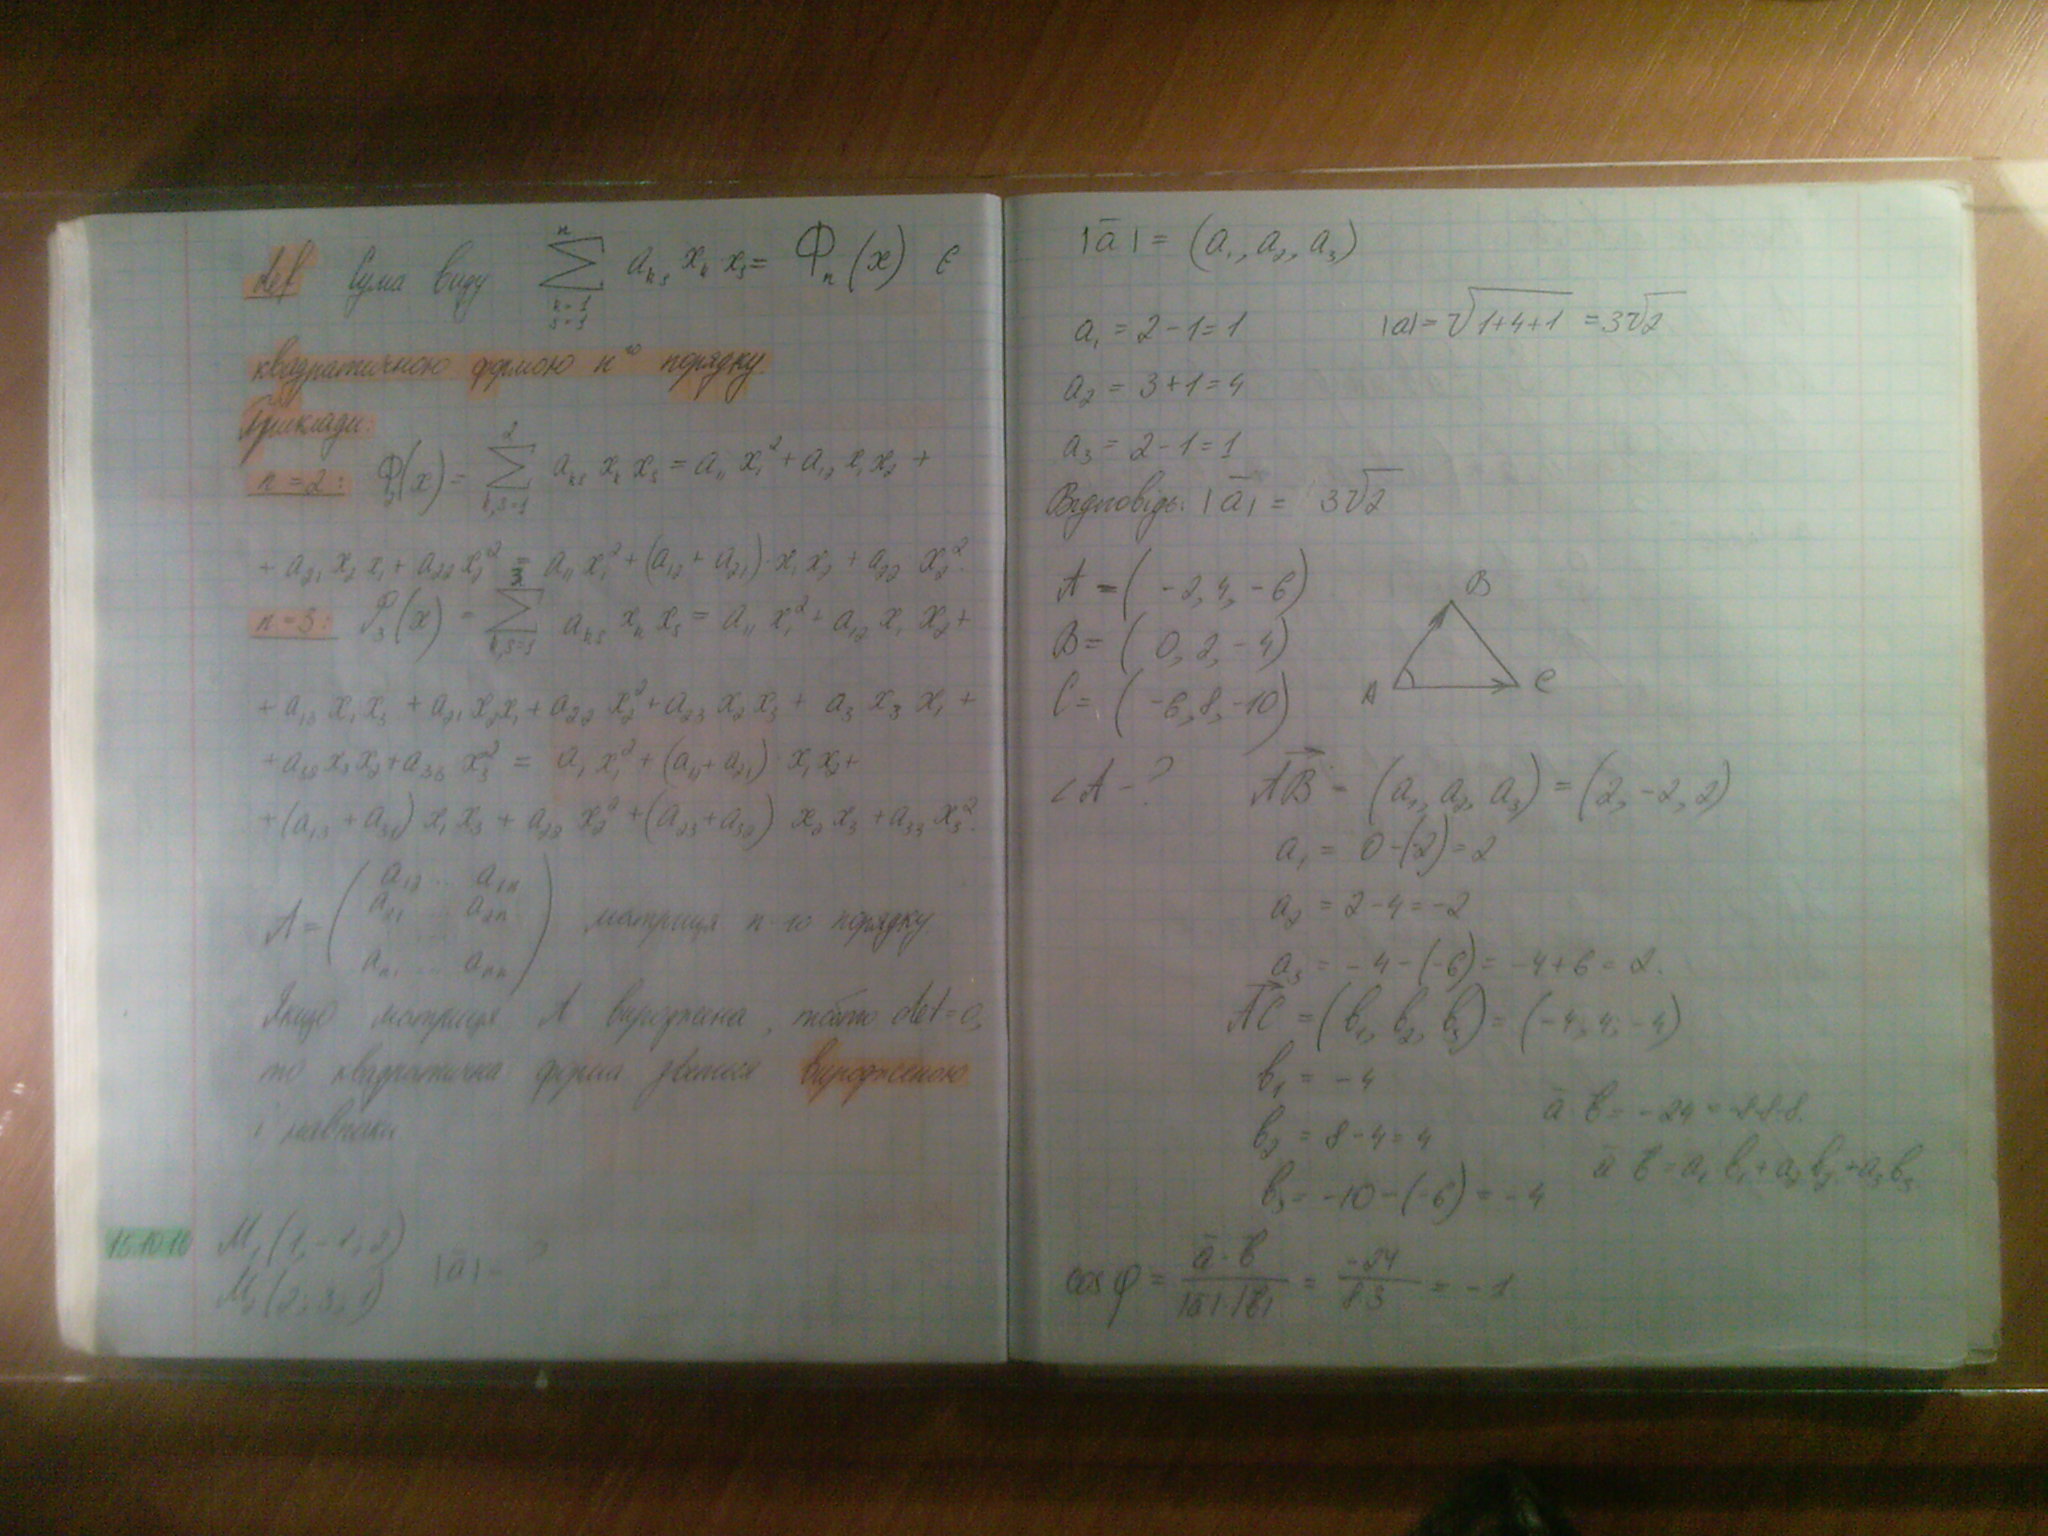 def Сума виду n ∑ k=1 s=1 aₖₛ xₖ xₛ = Фₙ(x) є
квадратичною формою n-го порядку.
Приклади:
n=2: Ф₂(x) = 2 ∑ k,s=1 aₖₛ xₖ xₛ = a₁₁ x₁² + a₁₂ x₁ x₂ +
+ a₂₁ x₂ x₁ + a₂₂ x₂² = a₁₁ x₁² + (a₁₂ + a₂₁)·x₁ x₂ + a₂₂ x₂².
n=3: Ф₃(x) = 3 ∑ k,s=1 aₖₛ xₖ xₛ = a₁₁ x₁² + a₁₂ x₁ x₂ +
+ a₁₃ x₁ x₃ + a₂₁ x₂ x₁ + a₂₂ x₂² + a₂₃ x₂ x₃ + a₃ x₃ x₁ +
+ a₃₂ x₃ x₂ + a₃₃ x₃² = a₁ x₁² + (a₁₁ + a₂₁) x₁ x₂ +
+ (a₁₃ + a₃₁) x₁ x₃ + a₂₂ x₂² + (a₂₃ + a₃₂) x₂ x₃ + a₃₃ x₃².
a₁₂ ... a₁ₙ
a₂₁ ... a₂ₙ
A = ( ) матриця n-го порядку
aₙ₁ ... aₙₙ
Якщо матриця A вироджена, тобто det=0,
то квадратична форма зветься виродженою
і навпаки
15.10.16 M₁(1, -1, 2)
|a̅| - ?
M₂(2, 3, 1)
|a̅| = (a₁, a₂, a₃)
a₁ = 2 - 1 = 1 |a| = √1+4+1 = 3√2
a₂ = 3 + 1 = 4
a₃ = 2 - 1 = 1
Відповідь: |a̅| = 3√2
A = ( -2, 4, -6)
B = ( 0, 2, -4)
C = ( -6, 8, -10)
B
A C
<A - ? AB = (a₁, a₂, a₃) = (2, -2, 2)
a₁ = 0 - (-2) = 2
a₂ = 2 - 4 = -2
a₃ = -4 - (-6) = -4 + 6 = 2.
AC = (b₁, b₂, b₃) = (-4; 4; -4)
b₁ = -4
a̅·b̅ = -24 = -8-8-8.
b₂ = 8 - 4 = 4
a̅ b̅ = a₁ b₁ + a₂ b₂ + a₃ b₃
b₃ = -10 - (-6) = -4
cos φ = a̅·b̅ / |a̅|·|b̅| = -24 / 8·3 = -1